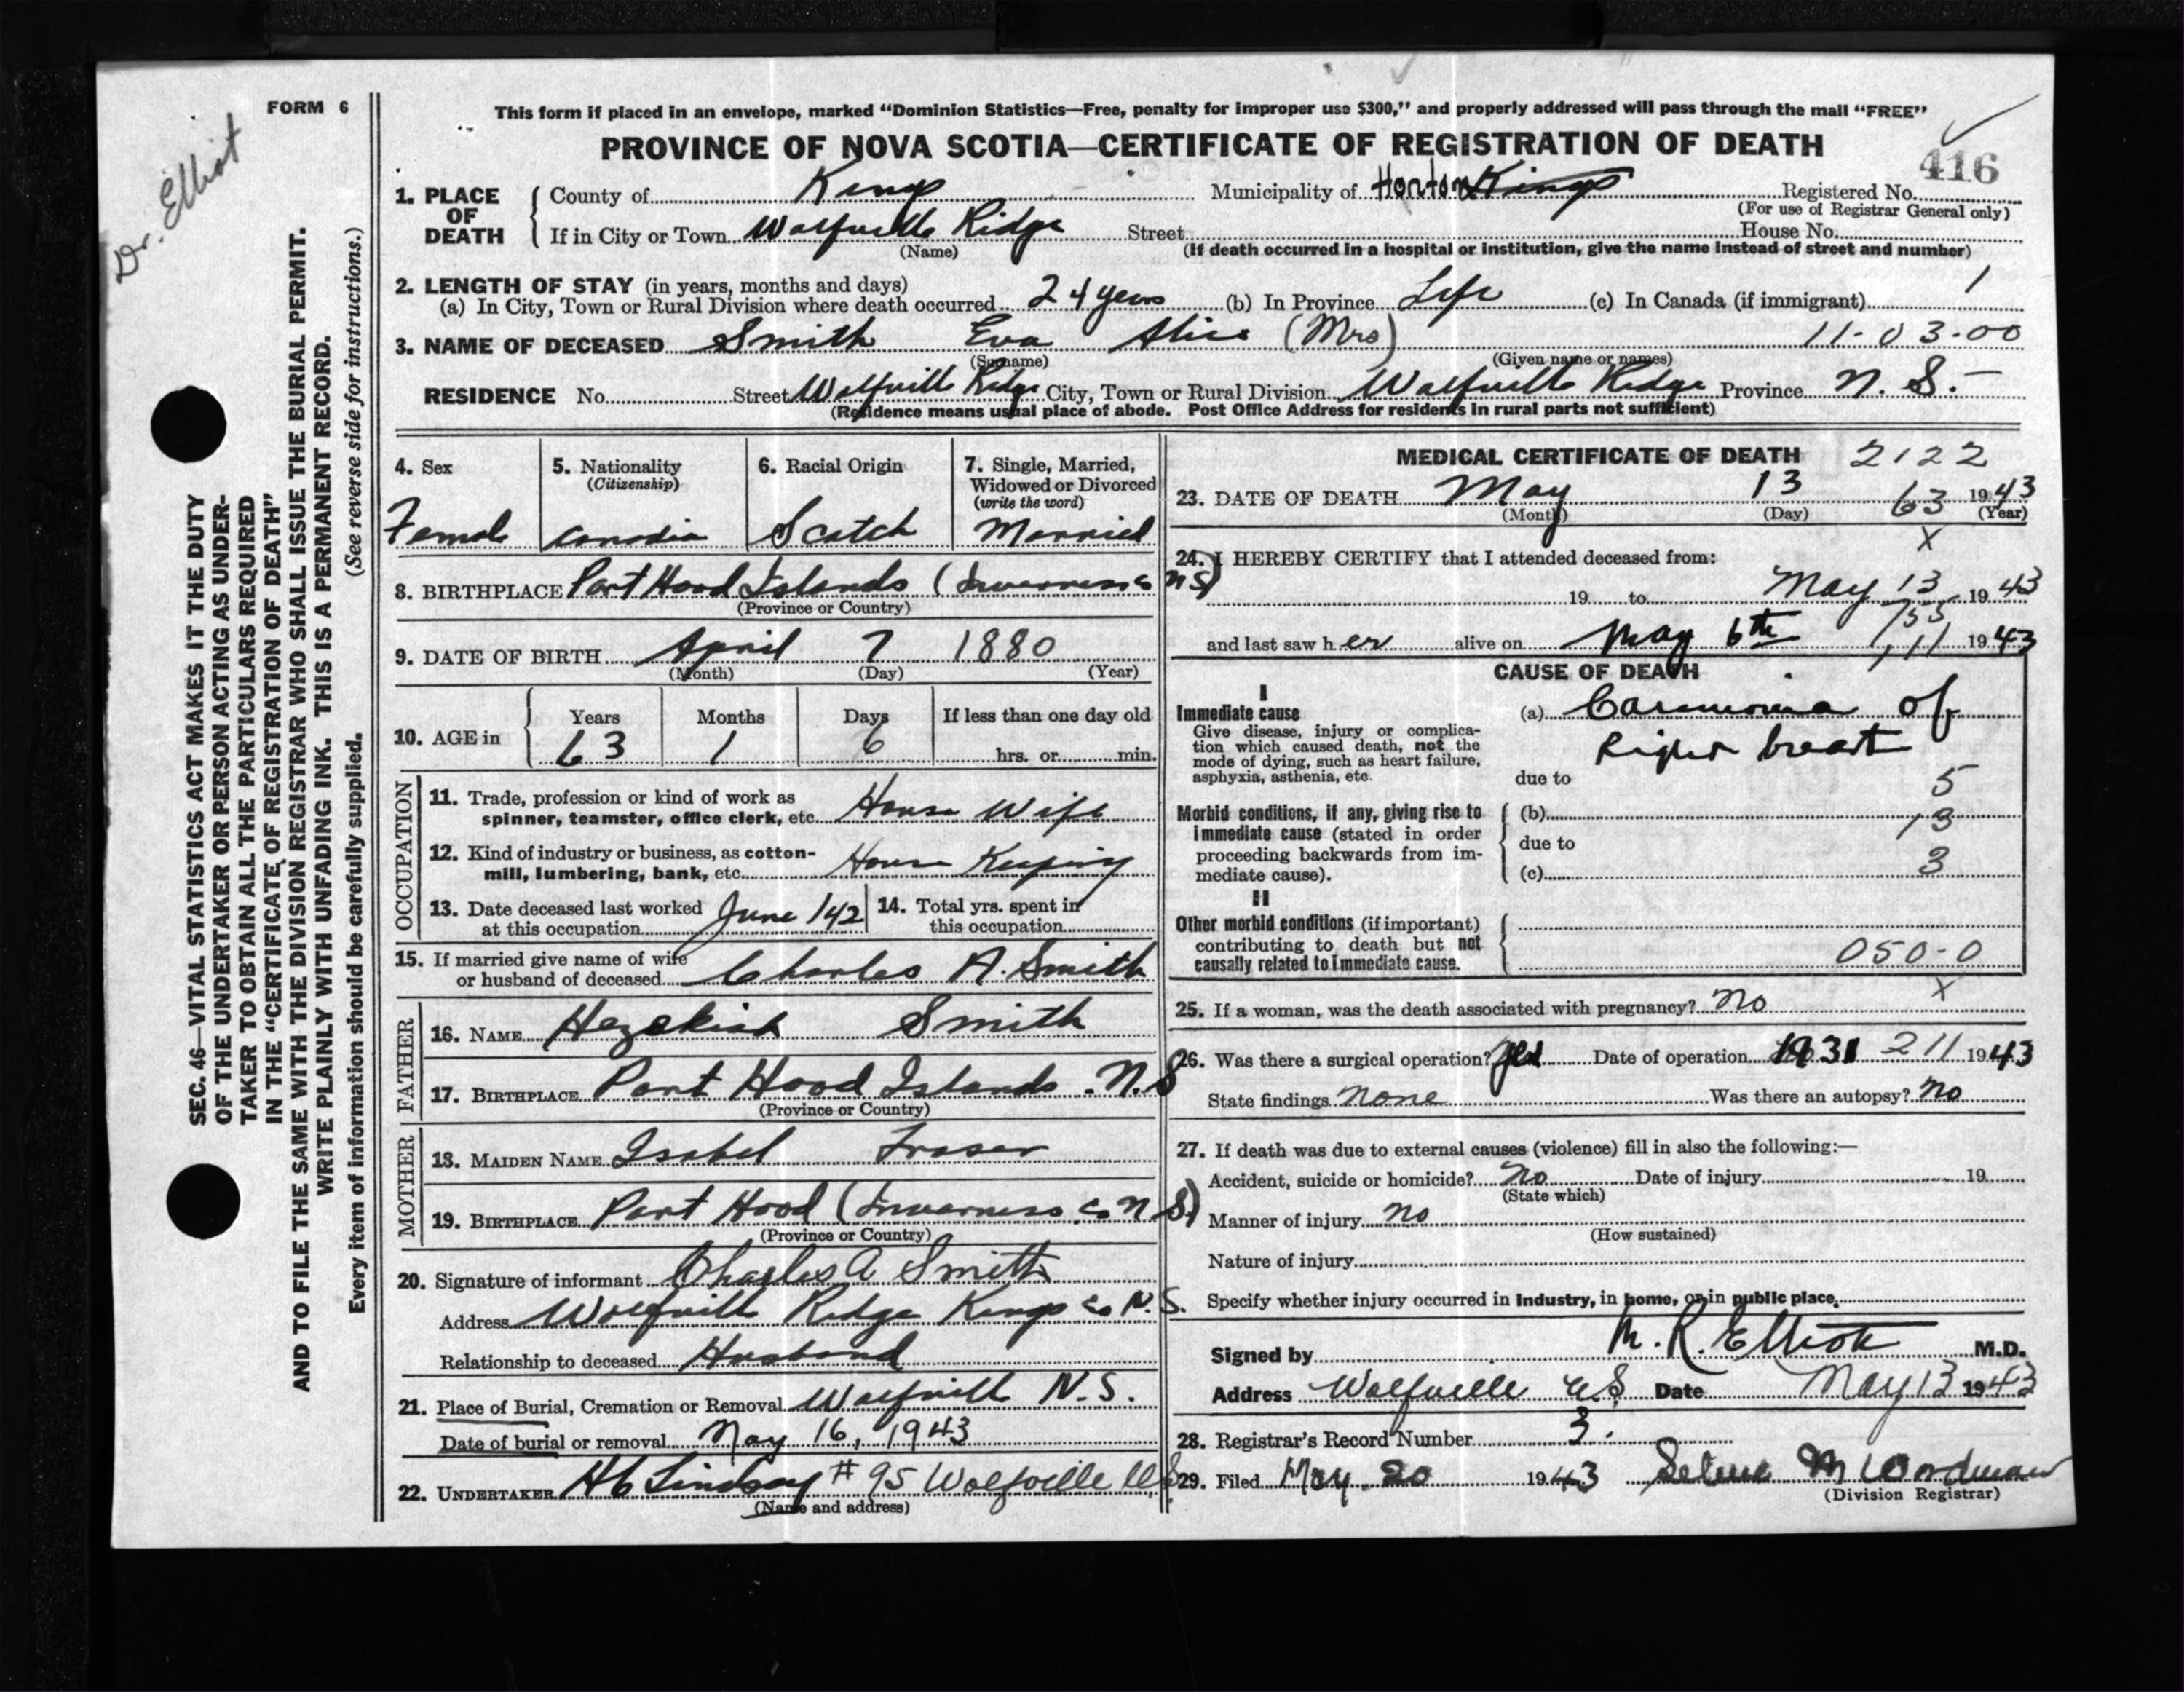 FORM 6
Dr. Elliot
SEC. 46—VITAL STATISTICS ACT MAKES IT THE DUTY
OF THE UNDERTAKER OR PERSON ACTING AS UNDER-
TAKER TO OBTAIN ALL THE PARTICULARS REQUIRED
IN THE "CERTIFICATE OF REGISTRATION OF DEATH"
AND TO FILE THE SAME WITH THE DIVISION REGISTRAR WHO SHALL ISSUE THE BURIAL PERMIT.
WRITE PLAINLY WITH UNFADING INK. THIS IS A PERMANENT RECORD.
Every item of information should be carefully supplied. (See reverse side for instructions.)
This form if placed in an envelope, marked "Dominion Statistics—Free, penalty for improper use $300," and properly addressed will pass through the mail "FREE"
PROVINCE OF NOVA SCOTIA—CERTIFICATE OF REGISTRATION OF DEATH
416
1. PLACE OF DEATH County of Kings Municipality of Horton Kings Registered No.
(For use of Registrar General only)
If in City or Town Wolfville Ridge Street House No.
(Name) (If death occurred in a hospital or institution, give the name instead of street and number)
2. LENGTH OF STAY (in years, months and days)
(a) In City, Town or Rural Division where death occurred 24 years (b) In Province Life (c) In Canada (if immigrant) 1
3. NAME OF DECEASED Smith Eva Alice (Mrs) 11-03-00
(Surname) (Given name or names)
RESIDENCE No. Street Wolfville Ridge City, Town or Rural Division Wolfville Ridge Province N. S.-
(Residence means usual place of abode. Post Office Address for residents in rural parts not sufficient)
4. Sex Female
5. Nationality (Citizenship) Canadia
6. Racial Origin Scotch
7. Single, Married, Widowed or Divorced (write the word) Married
8. BIRTHPLACE Port Hood Islands (Inverness Co N S)
(Province or Country)
9. DATE OF BIRTH April 7 1880
(Month) (Day) (Year)
10. AGE in Years 63 Months 1 Days 6 If less than one day old hrs. or min.
OCCUPATION
11. Trade, profession or kind of work as spinner, teamster, office clerk, etc. House Wife
12. Kind of industry or business, as cotton-mill, lumbering, bank, etc. House Keeping
13. Date deceased last worked at this occupation June 142 14. Total yrs. spent in this occupation
15. If married give name of wife or husband of deceased Charles A. Smith
FATHER
16. NAME Hezekiah Smith
17. BIRTHPLACE Port Hood Islands. N.S
(Province or Country)
MOTHER
18. MAIDEN NAME Isabel Fraser
19. BIRTHPLACE Port Hood (Inverness Co N S.)
(Province or Country)
20. Signature of informant Charles A Smith
Address Wolfville Ridge Kings Co N.S.
Relationship to deceased Husband
21. Place of Burial, Cremation or Removal Wolfville N.S.
Date of burial or removal May 16, 1943
22. UNDERTAKER Lindsay # 95 Wolfville
(Name and address)
MEDICAL CERTIFICATE OF DEATH 2122
23. DATE OF DEATH May 13 63 1943
(Month) (Day) (Year)
X
24. I HEREBY CERTIFY that I attended deceased from:
19 to May 13 1943
155
and last saw her alive on May 6th 1943
CAUSE OF DEATH
I
Immediate cause
Give disease, injury or complica-
tion which caused death, not the
mode of dying, such as heart failure,
asphyxia, asthenia, etc.
(a) Carcinoma of
Right breast
due to 5
Morbid conditions, if any, giving rise to
immediate cause (stated in order
proceeding backwards from im-
mediate cause).
(b)
due to 13
(c) 3
II
Other morbid conditions (if important)
contributing to death but not
causally related to immediate cause.
050-0
X
25. If a woman, was the death associated with pregnancy? No
26. Was there a surgical operation? Yes Date of operation 1931 211 1943
State findings none Was there an autopsy? No
27. If death was due to external causes (violence) fill in also the following:—
Accident, suicide or homicide? No Date of injury 19
(State which)
Manner of injury no
(How sustained)
Nature of injury
Specify whether injury occurred in industry, in home, or in public place
Signed by M. R. Elliott M.D.
Address Wolfville NS Date May 13 1943
28. Registrar's Record Number 3.
29. Filed May. 20 1943 M Woodman
(Division Registrar)